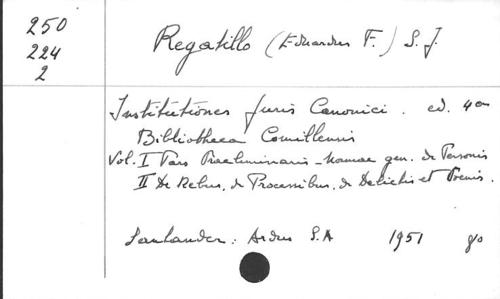 250
224
2
Regatillo (Eduardus F.) S. J.
Institutiones Juris Canonici. ed. 4a
Bibliotheca Comillensis
Vol. I Pars Praeliminaris - Normae gen. de Personis
II De Rebus, de Processibus, de Delictis et Poenis.
Santander: Aldus S.A 1951 8o